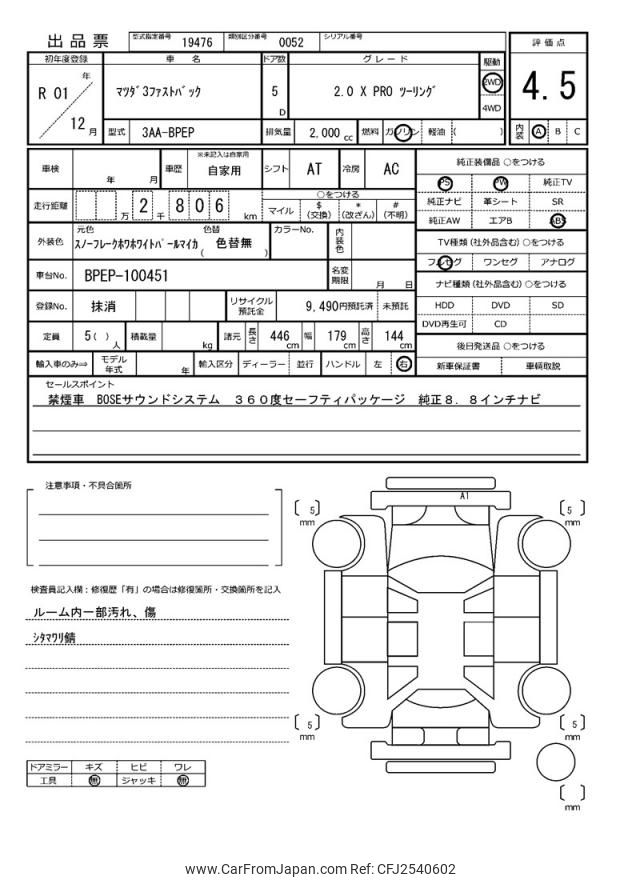 出品票
型式指定番号 19476 類別区分番号 0052 シリアル番号
評価点
4.5
内装 A B C
初年度登録 車名 ドア数 グレード 駆動
R 01 年 12 月
マツダ3ファストバック 5 D 2.0 X PRO ツーリング 2WD 4WD
型式 3AA-BPEP 排気量 2,000 cc 燃料 ガソリン 軽油 ( )
車検 年 月 車歴 ※未記入は自家用 自家用 シフト AT 冷房 AC
走行距離 万 2 千 8 0 6 km
○をつける
マイル $(交換) *(改ざん) #(不明)
外装色 元色 色替
スノーフレークホワホワイトパールマイカ ( 色替無 )
カラーNo. 内装色
車台No. BPEP-100451 名変期限 月 日
登録No. 抹消 リサイクル預託金 9,490円預託済 未預託
定員 5( ) 人 積載量 kg 諸元 長さ 446 cm 幅 179 cm 高さ 144 cm
輸入車のみ⇒ モデル年式 年 輸入区分 ディーラー 並行 ハンドル 左 右
純正装備品 ○をつける
PS PW 純正TV
純正ナビ 革シート SR
純正AW エアB ABS
TV種類(社外品含む) ○をつける
フルセグ ワンセグ アナログ
ナビ種類(社外品含む) ○をつける
HDD DVD SD
DVD再生可 CD
後日発送品 ○をつける
新車保証書 車輌取説
セールスポイント
禁煙車 BOSEサウンドシステム 360度セーフティパッケージ 純正8.8インチナビ
注意事項・不具合箇所
検査員記入欄:修復歴「有」の場合は修復箇所・交換箇所を記入
ルーム内一部汚れ、傷
シタマワリ錆
ドアミラー キズ ヒビ ワレ
工具 無 ジャッキ 無
A1
[ 5 ] mm
[ 5 ] mm
[ 5 ] mm
[ 5 ] mm
[ ] mm
www.CarFromJapan.com Ref: CFJ2540602